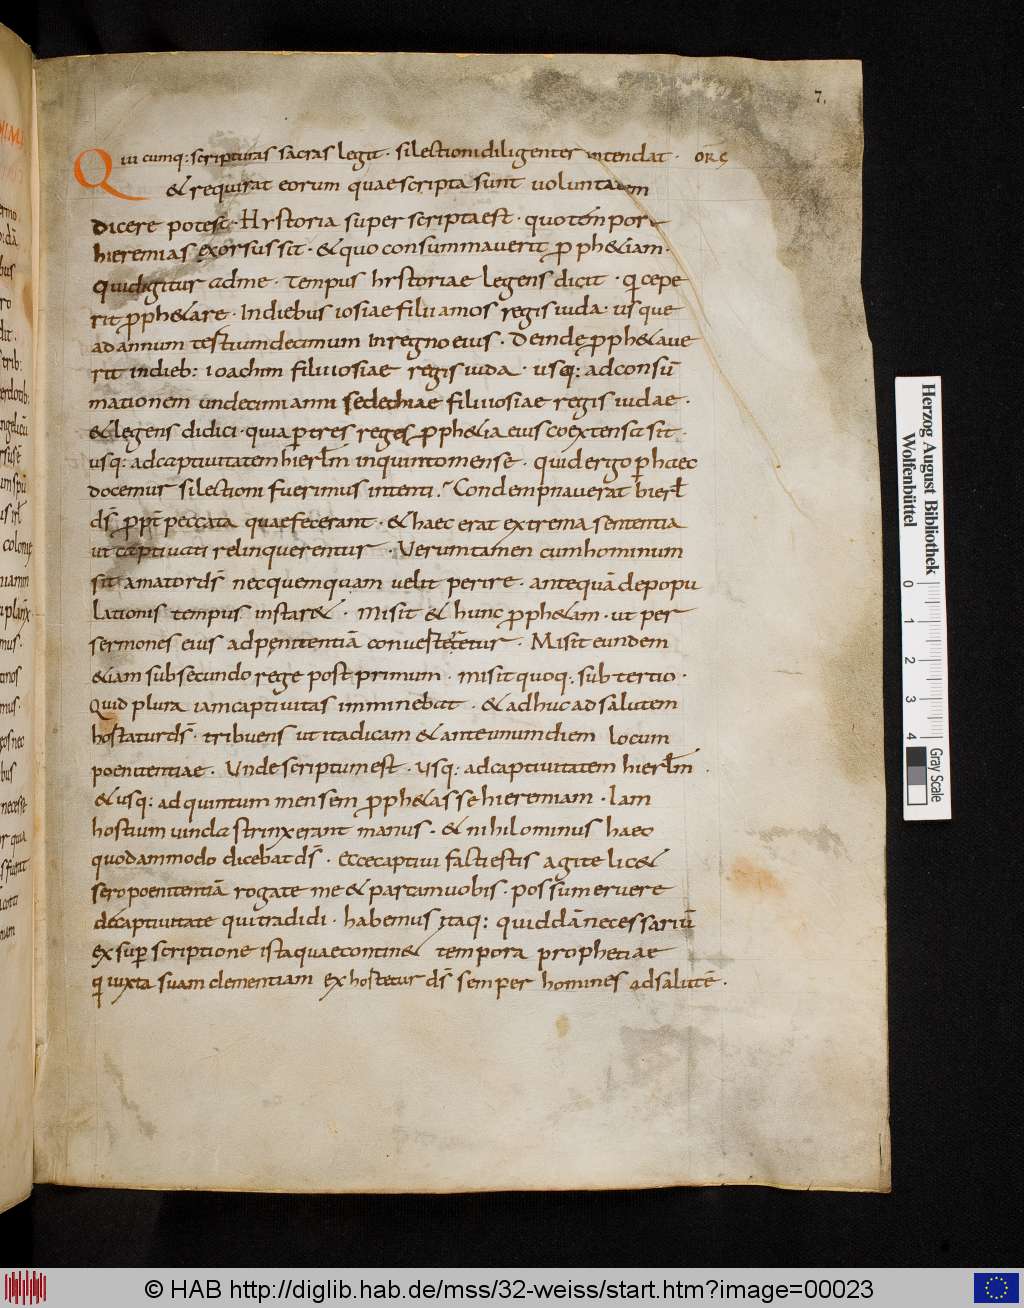 7.
Qui cumq: scripturas sacras legit · si lectioni diligenter intendat · ORG
& requirat eorum quae scripta sunt voluntatem
dicere potest · Historia super scripta est · quo tempore
hieremias exorsus sit · & quo consummaverit pph&iam ·
Quid igitur ad me · Tempus historiae legens dicit · q cepe
rit pph&are · In diebus iosiae filii amos regis iuda · usque
ad annum tertium decimum in regno eius · Deinde pph&ave
rit in dieb: ioachim filii iosiae regis iuda · usq: ad consū
mationem undecimi anni sedechiae filii iosiae regis iudae ·
& legens didici · quia p tres reges pph&ia eius coextensa sit ·
usq: ad captivitatem hierłm in quinto mense · quid ergo p haec
docemur si lectioni fuerimus intenti · Condempnaverat hierł
ds̄ ppt peccata quae fecerant · & haec erat extrema sententia
ut captivati relinquerentur · Verumtamen cum hominum
sit amator ds̄ nec quemquam velit perire · antequā depopu
lationis tempus instar& · misit & hunc pph&am · ut per
sermones eius ad penitentiā converterentur · Misit eundem
&iam sub secundo rege post primum · misit quoq: sub tertio ·
Quid plura iam captivitas imminebat · & adhuc ad salutem
hostatur ds̄ · tribuens ut ita dicam & ante unum diem locum
poenitentiae · Unde scriptum est · Usq: ad captivitatem hierłm ·
& usq: ad quintum mensem pph&asse hieremiam · Iam
hostium vincla strinxerant manus · & nihilominus haec
quodammodo dicebat ds̄ · Ecce captivi facti estis agite lic&
sero poenitentiā rogate me & partim vobis · possum eruere
de captivitate qui tradidi · habemus itaq: quiddā necessariū
ex sup scriptione ista quae contin& tempora prophetiae
q iuxta suam clementiam exhortetur ds̄ semper homines ad salutē ·
Herzog August Bibliothek
Wolfenbüttel
0 1 2 3 4
Gray Scale
© HAB http://diglib.hab.de/mss/32-weiss/start.htm?image=00023